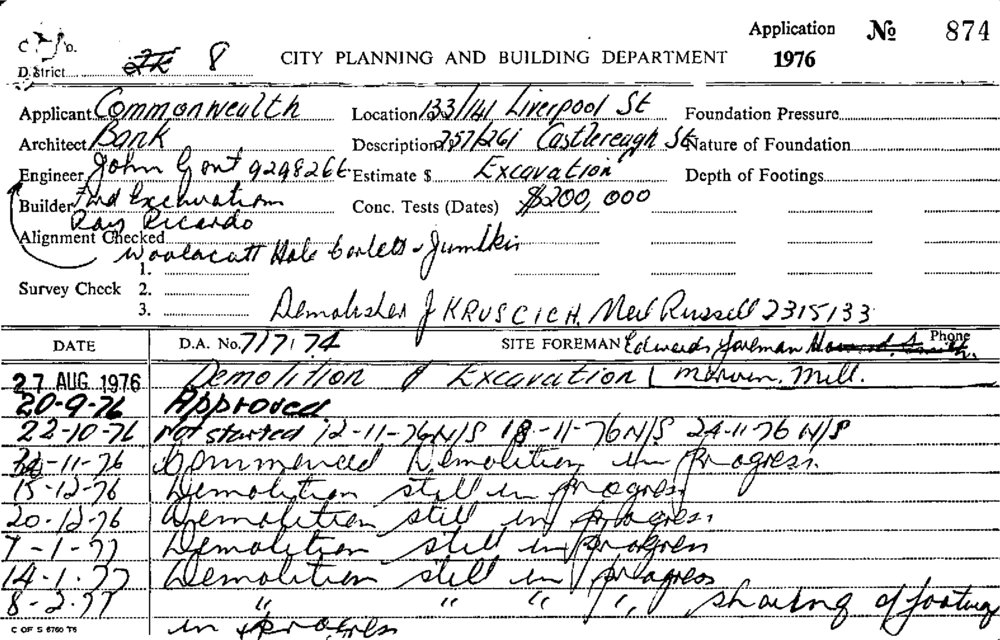 Application № 874
C D.
District 8 CITY PLANNING AND BUILDING DEPARTMENT 1976
Applicant Commonwealth Location 133/141 Liverpool St Foundation Pressure
Architect Bank Description 257/261 Castlereagh St Nature of Foundation
Engineer John Gont 9298266 Estimate $ Excavation Depth of Footings
Builder Excavation Conc. Tests (Dates) $200,000
Ray Ricardo
Alignment Checked
Woolacott Hale Corlett &
1.
Survey Check 2.
3. Demolisher J KRUSCICH. Merl Russell 2315133
DATE D.A. No. 717/74 SITE FOREMAN Edwards foreman Phone
27 AUG 1976 Demolition & Excavation ( Mervin. Mill.
20-9-76 Approved
22-10-76 Not started 12-11-76 N/S 18-11-76 N/S 24-11-76 N/S
-11-76 Commenced Demolition in progress.
15-12-76 Demolition still in progress
20-12-76 Demolition still in progress
7-1-77 Demolition still in progress
14-1-77 Demolition still in progress
8-2-77 " " " " shoring of footing
C OF S 6760 T6 in progress